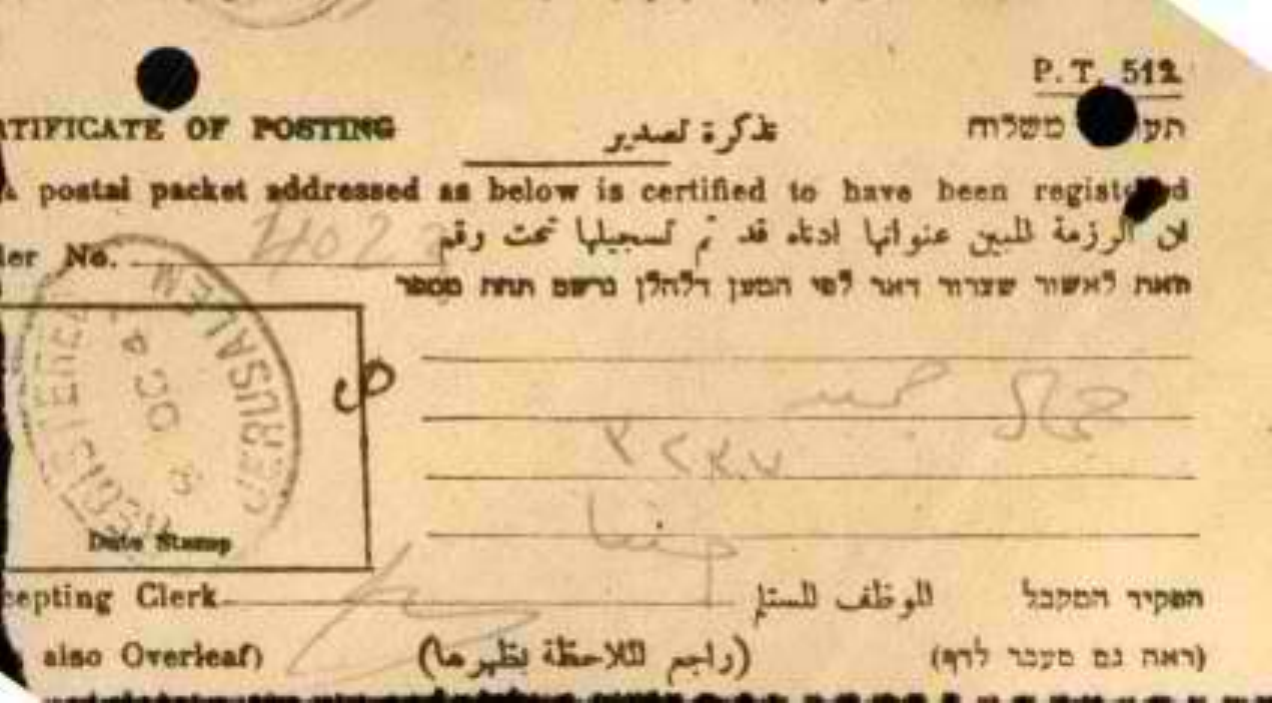 P. T. 512
RTIFICATE OF POSTING تذكرة تصدير תעו משלוח
A postal packet addressed as below is certified to have been registered
ان الرزمة المبين عنوانها ادناه قد تم تسجيلها تحت رقم
der No. 402
הזאת לאשור שצרור דאר לפי המען דלהלן נרשם תחת מספר
JERUSALEM
REGISTERED
OC 4
Date Stamp
حيفا
cepting Clerk الموظف المستلم הפקיד המקבל
also Overleaf) (راجع الملاحظة بظهرها) (ראה גם מעבר לדף)